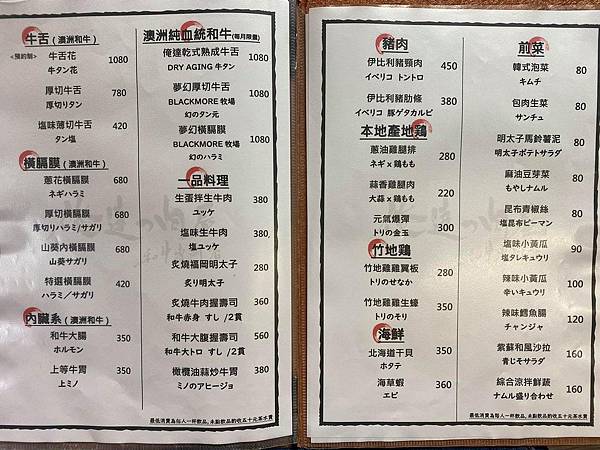 牛舌（澳洲和牛）
<預約制>
牛舌花 1080
牛タン花
厚切牛舌 780
厚切りタン
塩味薄切牛舌 420
タン塩
橫膈膜（澳洲和牛）
蔥花橫膈膜 680
ネギハラミ
厚切橫膈膜 680
厚切りハラミ/サガリ
山葵內橫膈膜 680
山葵サガリ
特選橫膈膜 420
ハラミ／サガリ
內臟系（澳洲和牛）
和牛大腸 350
ホルモン
上等牛胃 350
上ミノ
澳洲純血統和牛(每月限量)
俺達乾式熟成牛舌 1080
DRY AGING 牛タン
夢幻厚切牛舌 1080
BLACKMORE 牧場
幻のタン元
夢幻橫膈膜 1080
BLACKMORE 牧場
幻のハラミ
一品料理
生蛋拌生牛肉 380
ユッケ
塩味生牛肉 380
塩ユッケ
炙燒福岡明太子 280
炙り明太子
炙燒牛肉握壽司 360
和牛赤身 すし /2貫
和牛大腹握壽司 560
和牛大トロ すし /2貫
橄欖油蒜炒牛胃 380
ミノのアヒージョ
最低消費為每人一杯飲品, 未點飲品酌收五十元茶水費
豬肉
伊比利豬頸肉 450
イベリコ トントロ
伊比利豬肋條 380
イベリコ 豚ゲタカルビ
本地產地鶏
蔥油雞腿排 280
ネギｘ鶏もも
蒜香雞腿肉 220
大蒜ｘ鶏もも
元氣爆彈 300
トリの金玉
竹地鶏
竹地雞雞翼板 350
トリのせなか
竹地雞雞生蠔 350
トリのそり
海鮮
北海道干貝 350
ホタテ
海草蝦 360
エビ
前菜
韓式泡菜 80
キムチ
包肉生菜 80
サンチュ
明太子馬鈴薯泥 80
明太子ポテトサラダ
麻油豆芽菜 80
もやしナムル
昆布青椒絲 80
塩昆布ピーマン
塩味小黃瓜 90
塩タレキュウリ
辣味小黃瓜 90
辛いキュウリ
辣味鱈魚腸 120
チャンジャ
紫蘇和風沙拉 160
青じそサラダ
綜合涼拌鮮蔬 160
ナムル盛り合わせ
最低消費為每人一杯飲品, 未點飲品酌收五十元茶水費